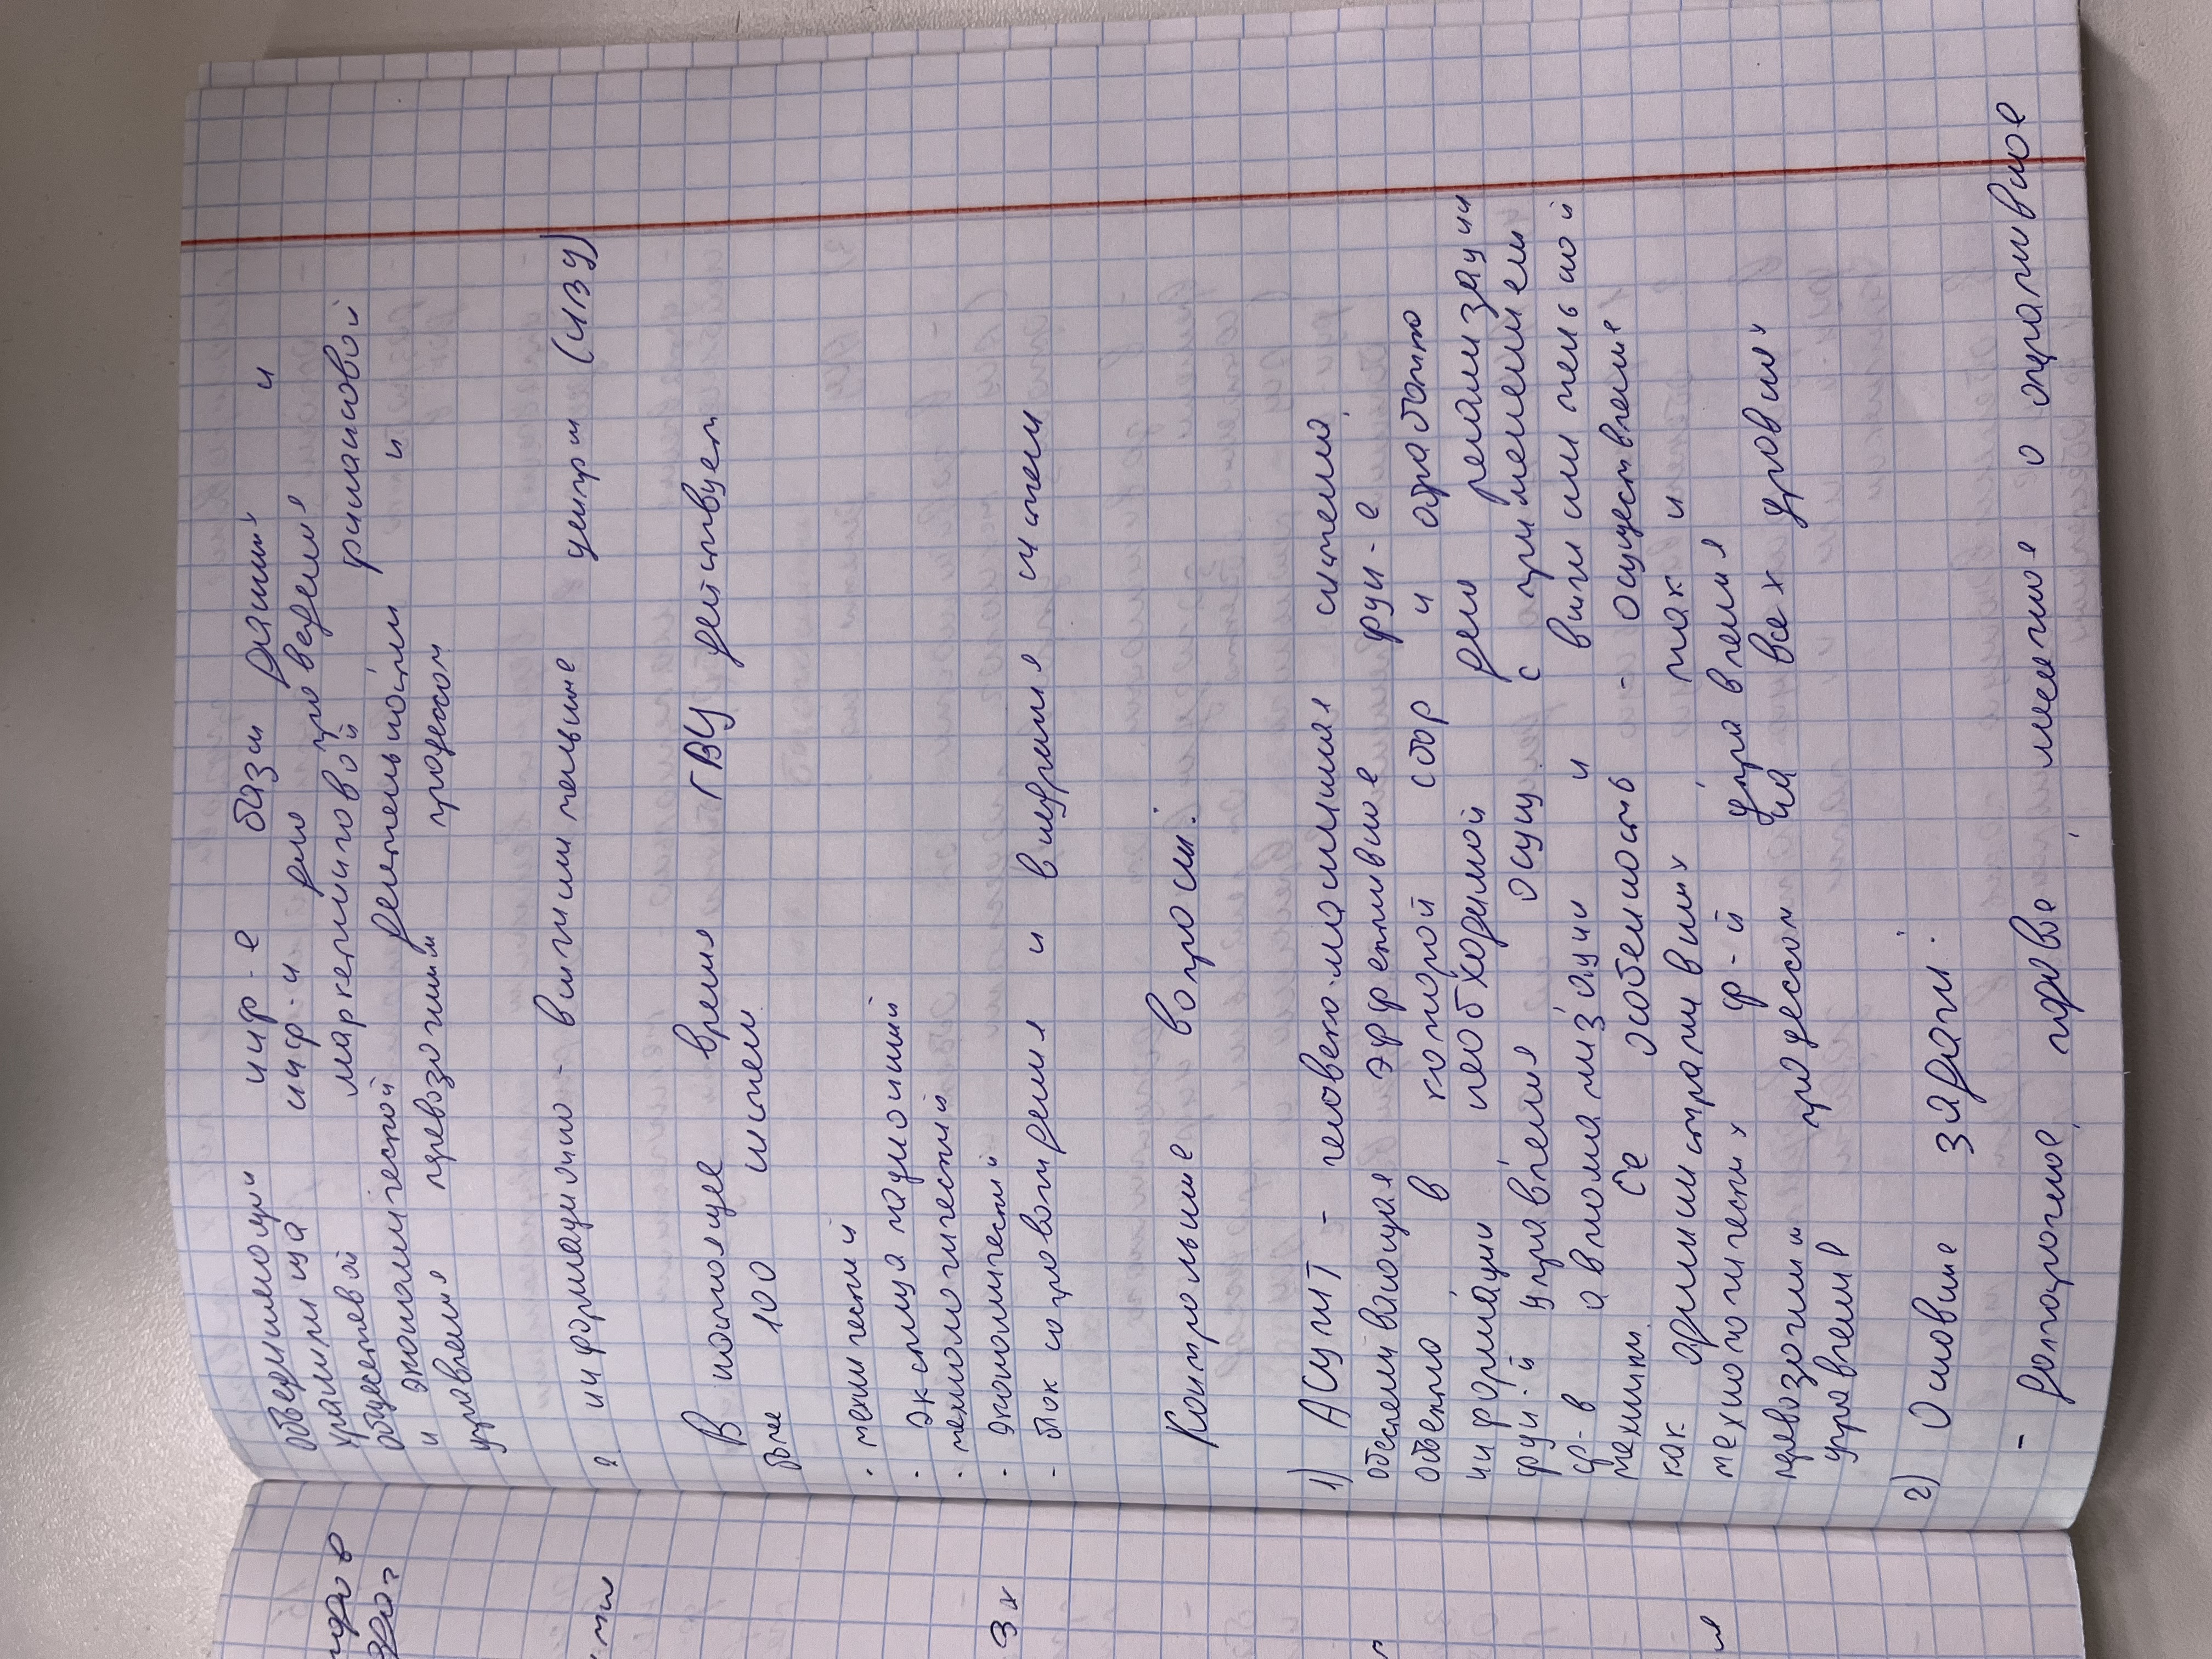 объединяющи инф-е базы данных и
хранилища инф-и для проведения
общества маркетинговой финансовой
и экономической деятельностью и
управления перевозочным процессом
2. информационно-вычислительные центры (ИВЦ)
В настоящее время ГВЦ действует
более 100 систем
· технический
· эксплуатационный
· технологический
· экономический
- блок сопровождения и внедрения систем
Контрольные вопросы:
1) АСУЖТ - человеко-машинная система,
обеспечивающая эффективное фун-е
объекта в которой сбор и обработка
информации необходимой для реализации
фун-й управления осущ. с применением
ср-в автоматизации и вычислительной
техники. Её особенность - осуществление
как административных так и
технологических ф-й управления
перевозочным процессом на всех уровнях
управления
2) Основные задачи:
- долгосрочное, годовое, месячное и оперативное